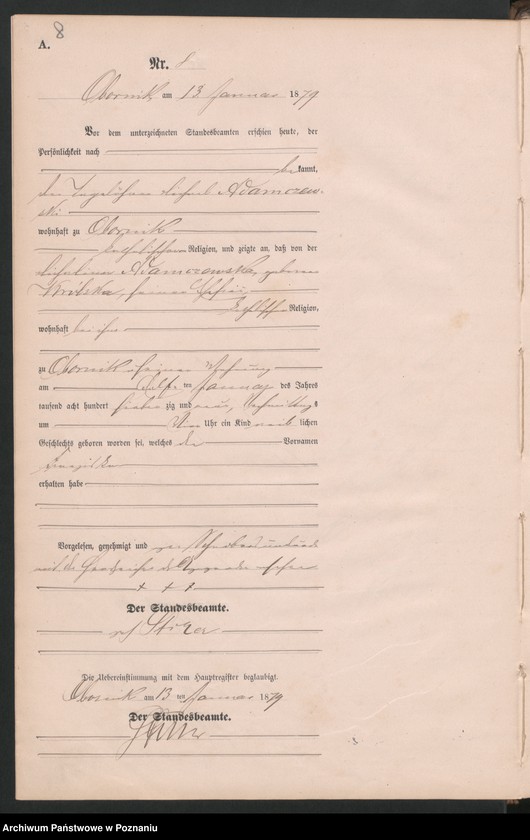 8
A.
Nr. 8
Obornik am 13 Januar 1879
Vor dem unterzeichneten Standesbeamten erschien heute, der
Persönlichkeit nach
bekannt,
der Tagelöhner Adamczew-
ski
wohnhaft zu Obornik
katholischer Religion, und zeigte an, daß von der
Adamczewska, geborne
seiner Ehefrau,
Religion,
wohnhaft bei ihm
zu Obornik in seiner Wohnung
am elften Januar des Jahres
tausend acht hundert siebenzig und neun, Vormittags
um Uhr ein Kind weiblichen
Geschlechts geboren worden sei, welches den Vornamen
erhalten habe
Vorgelesen, genehmigt und
mit der Handzeichen
+ + +
Der Standesbeamte.
Die Uebereinstimmung mit dem Hauptregister beglaubigt.
Obornik am 13 ten Januar 1879
Der Standesbeamte.
Archiwum Państwowe w Poznaniu